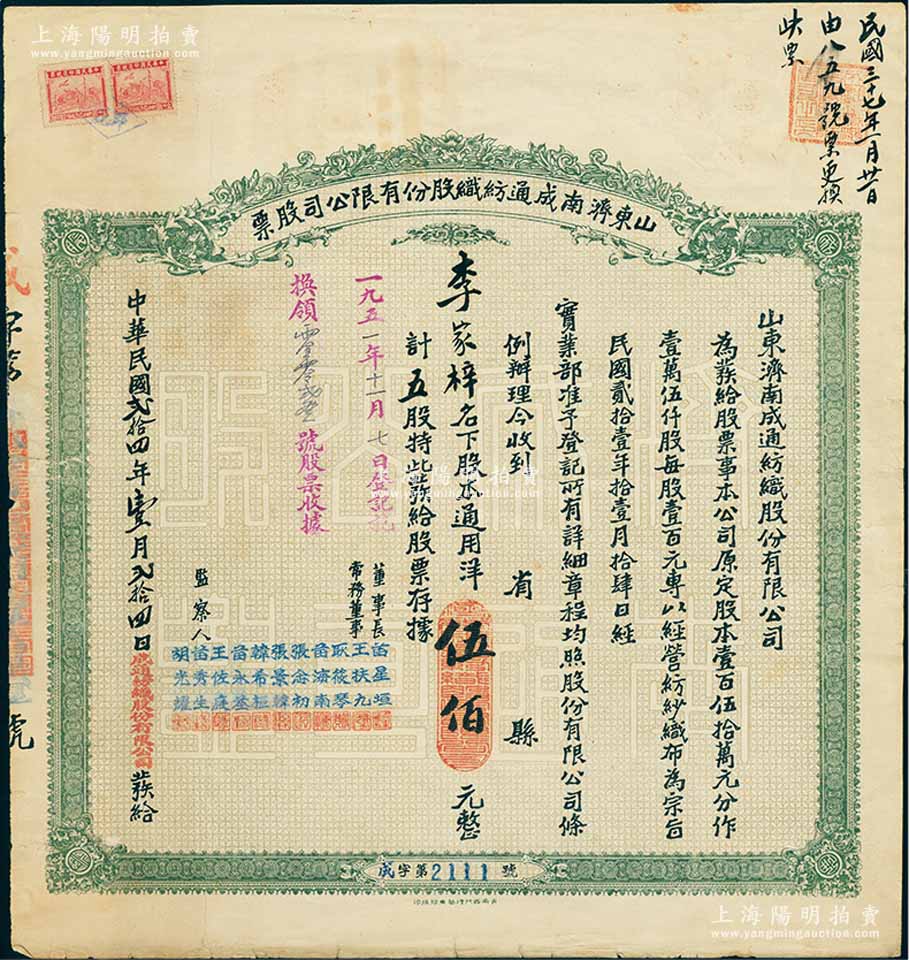 上海陽明拍賣
www.yangmingauction.com
民國三十七年一月廿日
由八五九號票更換
此票
山東濟南成通紡織股份有限公司股票
山東濟南成通紡織股份有限公司
為發給股票事本公司原定股本壹百伍拾萬元分作
壹萬伍仟股每股壹百元專以經營紡紗織布為宗旨
民國貳拾壹年拾壹月拾肆日經
實業部准予登記所有詳細章程均照股份有限公司條
例辦理今收到 省 縣
李家梓名下股本通用洋伍佰元整
計五股特此發給股票存據
一九五一年十一月七日登記訖
換領 號股票收據
董事長 苗星垣
常務董事 王扶九
耿筱琴
苗海南
張念初
張景韓
韓希
苗永
王佐庭
監察人
苗秀生
胡光耀
中華民國貳拾四年壹月貳拾四日成通紡織股份有限公司發給
成字第2111號
號
上海陽明拍賣
www.yangmingauction.com